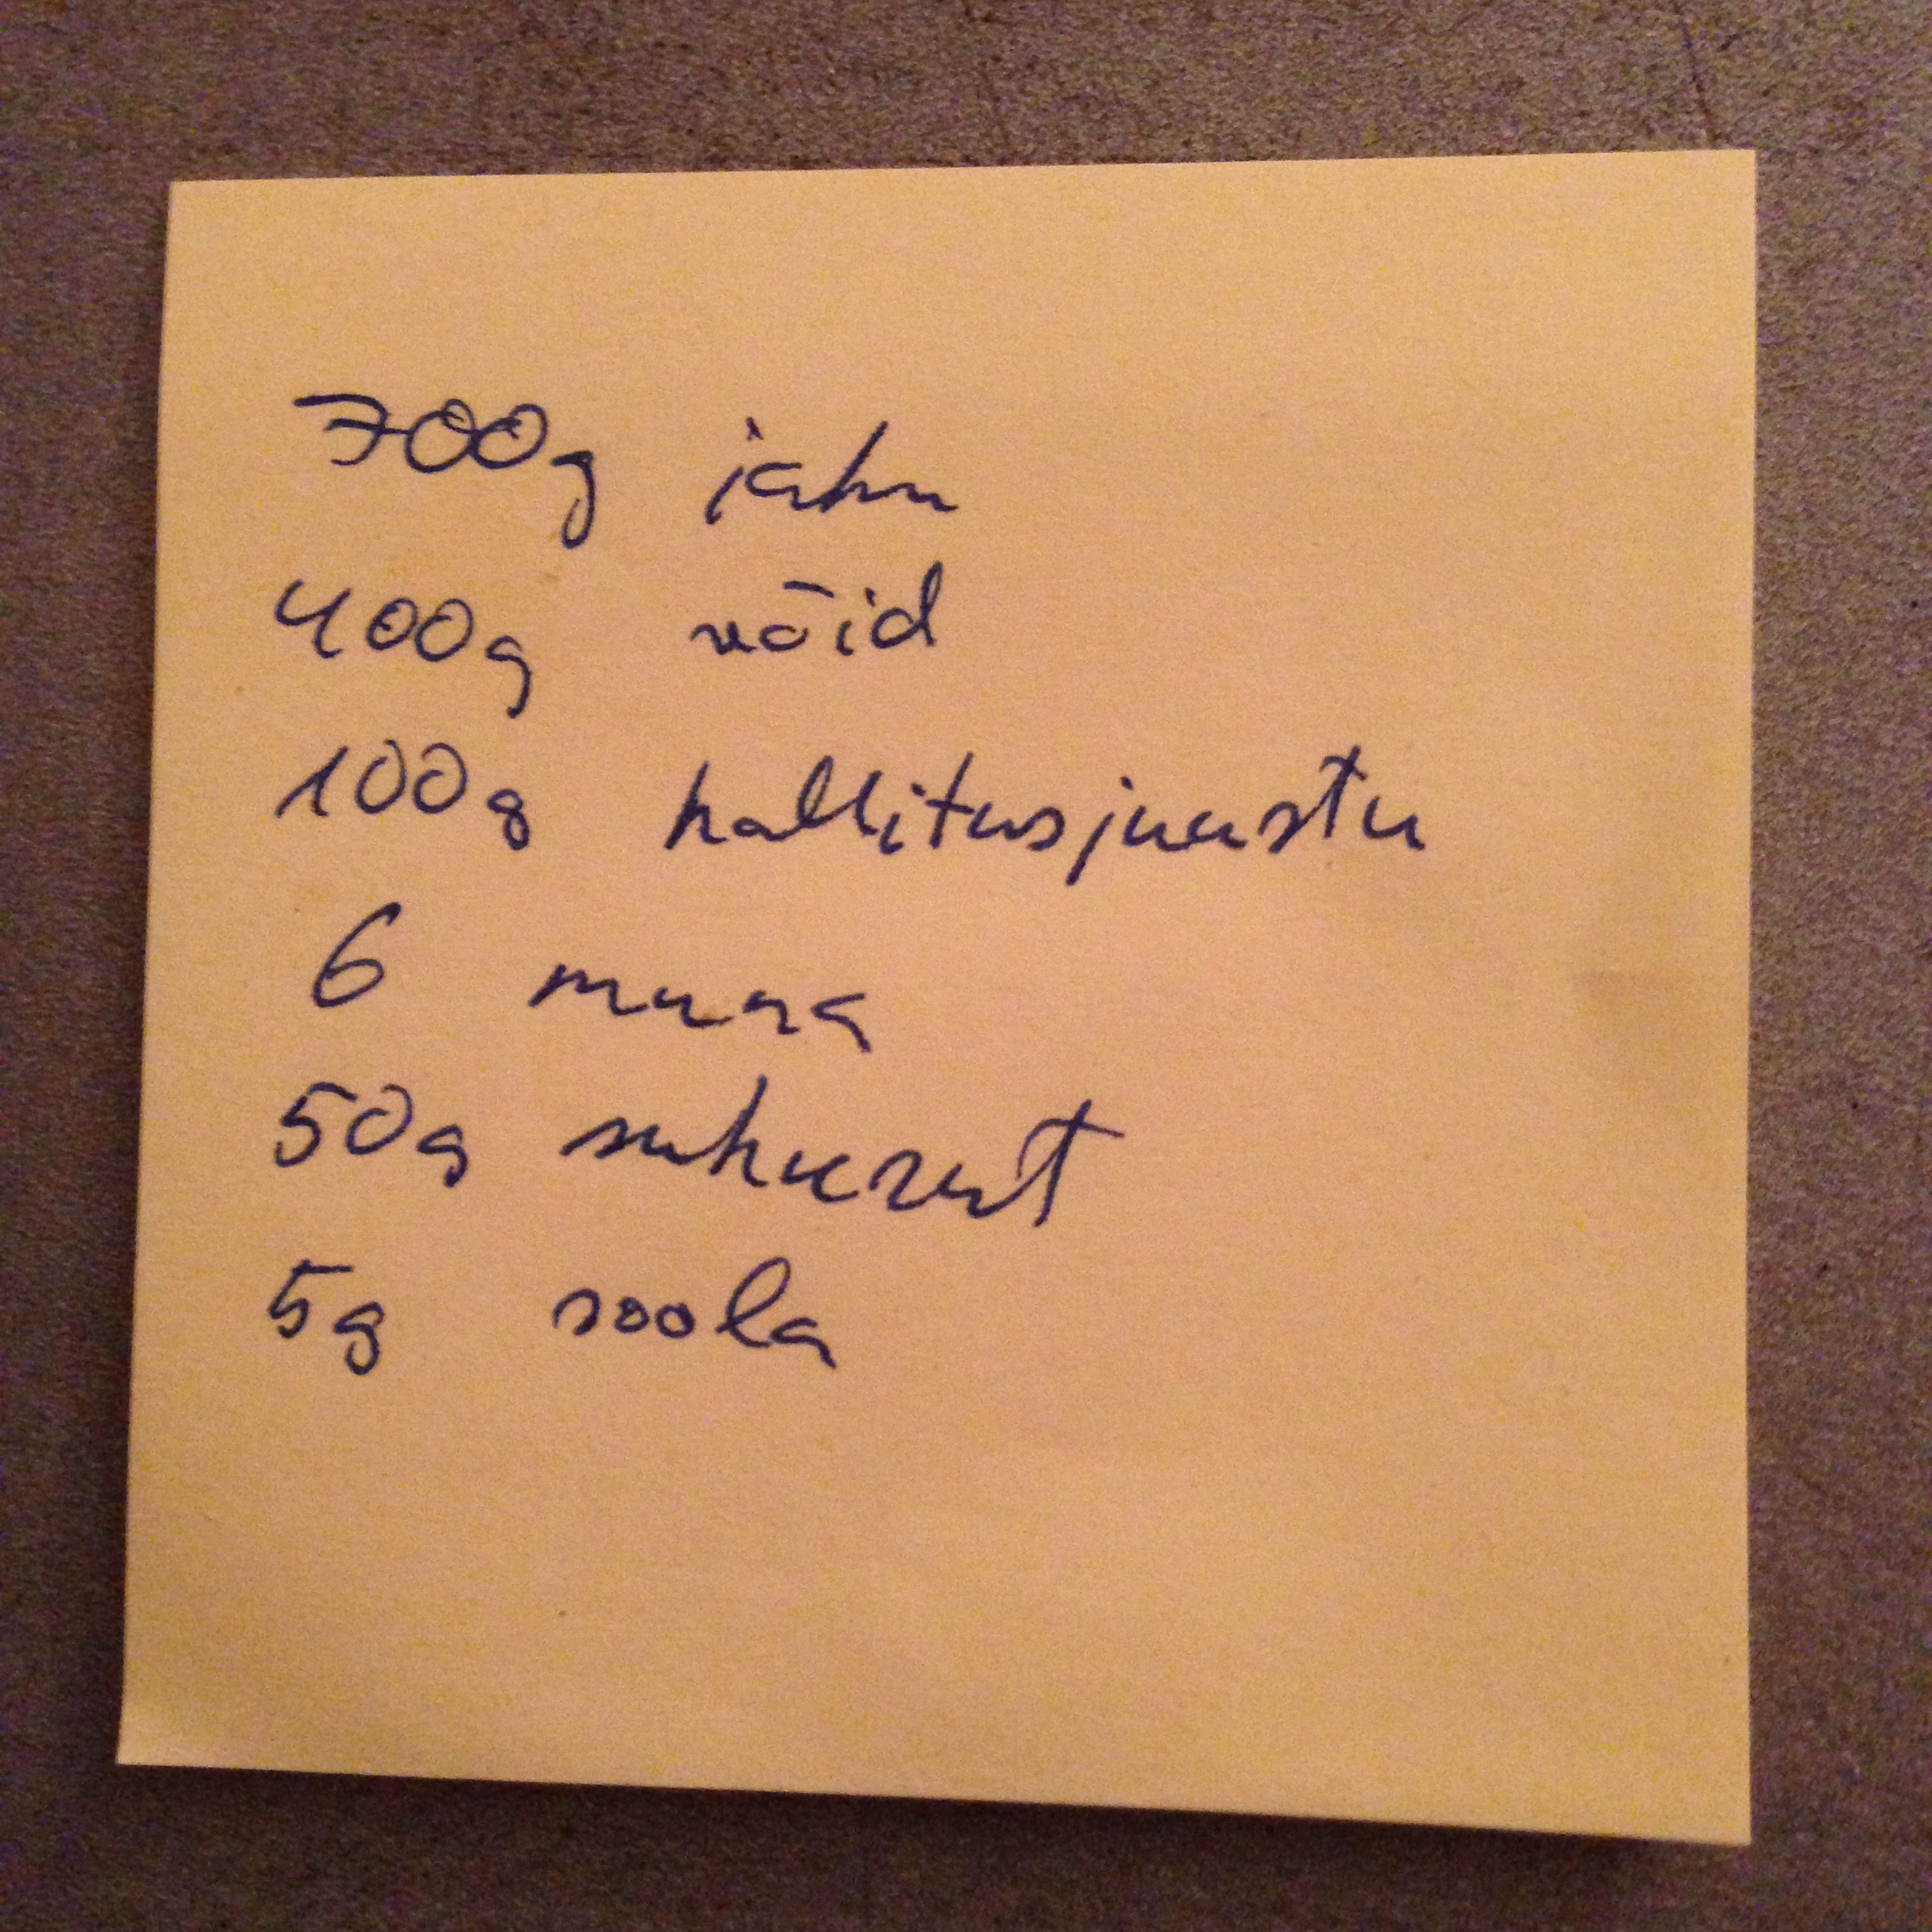 700g jahu
400g võid
100g hallitusjuustu
6 muna
50g suhkrut
5g soola